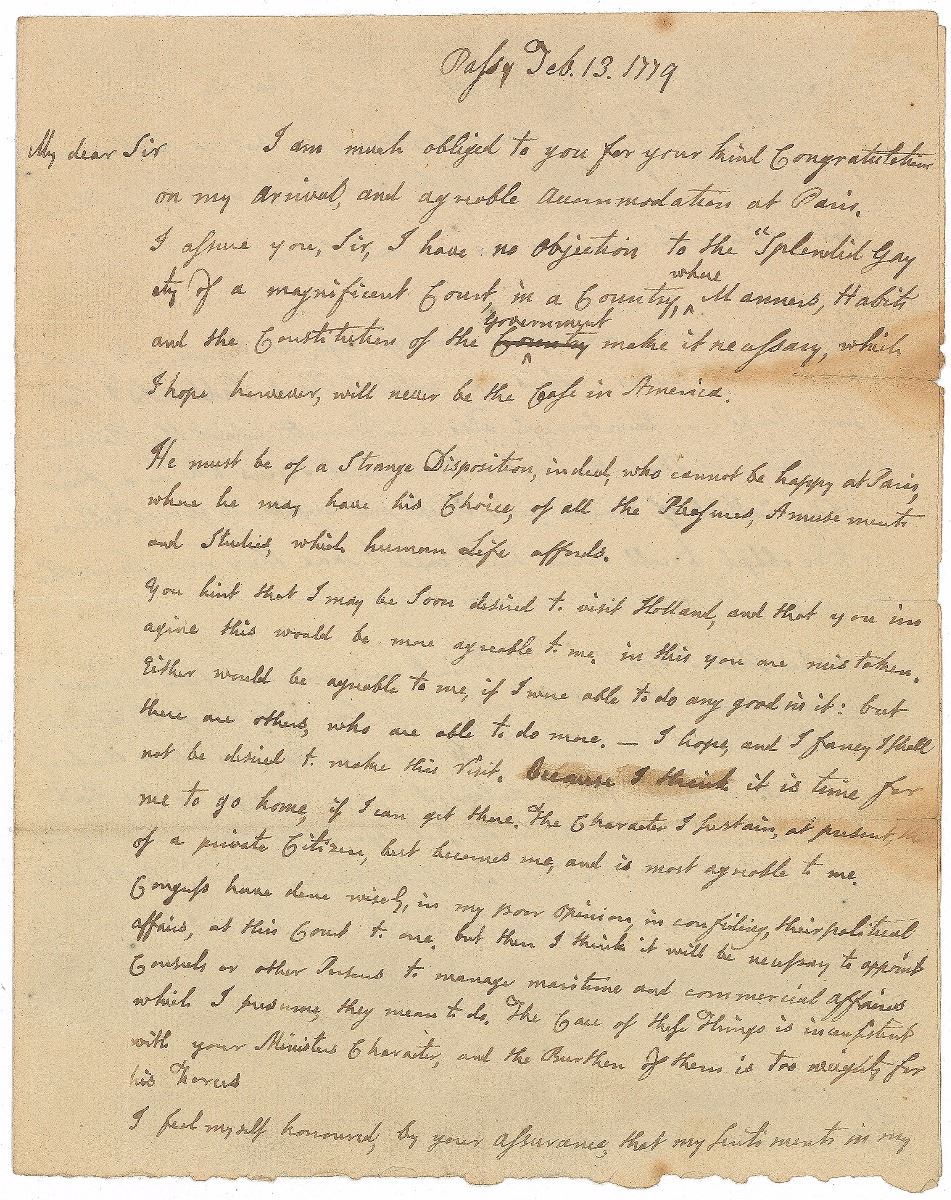 Passy Feb. 13. 1779
My dear Sir I am much obliged to you for your kind Congratulation
on my arrival, and agreable accommodation at Paris.
I assure you, Sir, I have no objection to the "Splendid Gay
ety of a magnificent Court, in a Country, where Manners, Habits
and the Constitution of the Country Government make it necessary, which
I hope however, will never be the Case in America.
He must be of a Strange Disposition, indeed, who cannot be happy at Paris,
where he may have his Choice, of all the Pleasures, Amusements
and Studies, which human Life affords.
You hint that I may be Soon desired to visit Holland, and that you im
agine this would be more agreable to me. in this you are mistaken.
Either would be agreable to me, if I were able to do any good in it: but
there are others, who are able to do more. — I hope, and I fancy I shall
not be desired to make this Visit. because I think it is time for
me to go home, if I can get there. The Character I sustain, at present,
of a private Citizen, best becomes me, and is most agreable to me.
Congress have done wisely, in my poor opinion, in confiding, their political
affairs, at this Court to one. but then I think it will be necessary to appoint
Consuls or other Persons to manage maritime and commercial affairs
which I presume, they mean to do. The Care of these Things is inconsistent
with your Ministers Character, and the Burthen of them is too weighty for
his Forces
I feel myself honoured, by your assurance, that my sentiments in my